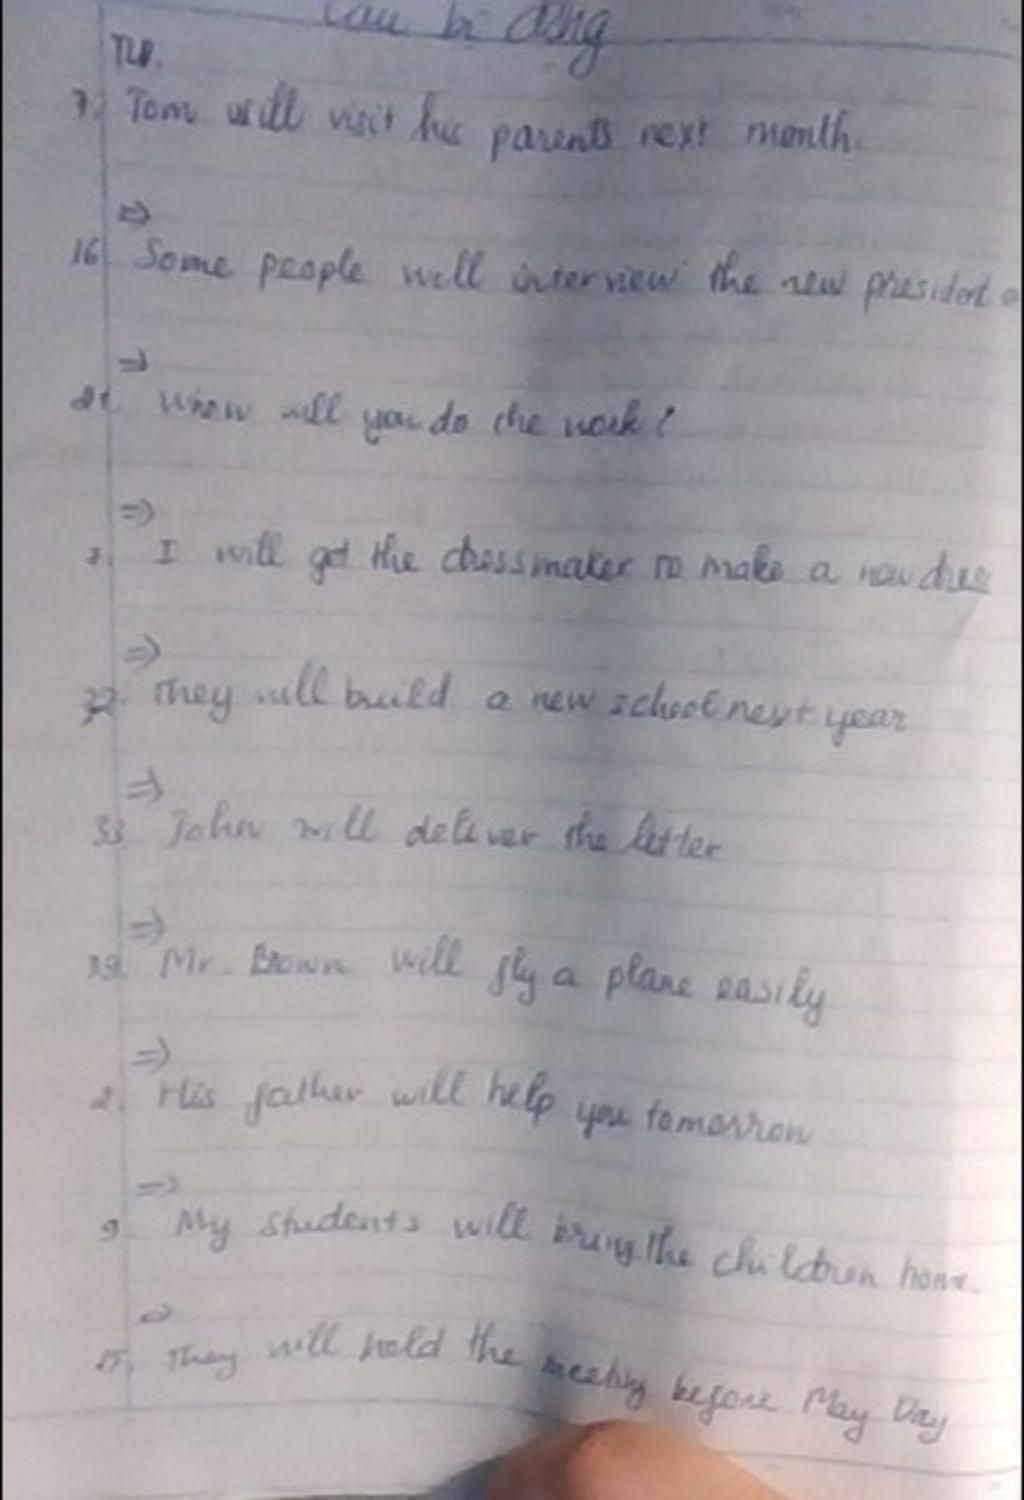 Câu bị động
TLĐ.
7. Tom will visit his parents next month.
=>
16 Some people will interview the new president
=>
21. When will you do the work?
=>
7. I will get the dressmaker to make a new dress
=>
32. They will build a new school next year
=>
33 John will deliver the letter
=>
39. Mr. Brown will fly a plane easily
=>
2. His father will help you tomorrow
=>
9 My students will bring the children home.
=>
15. They will hold the meeting before May Day